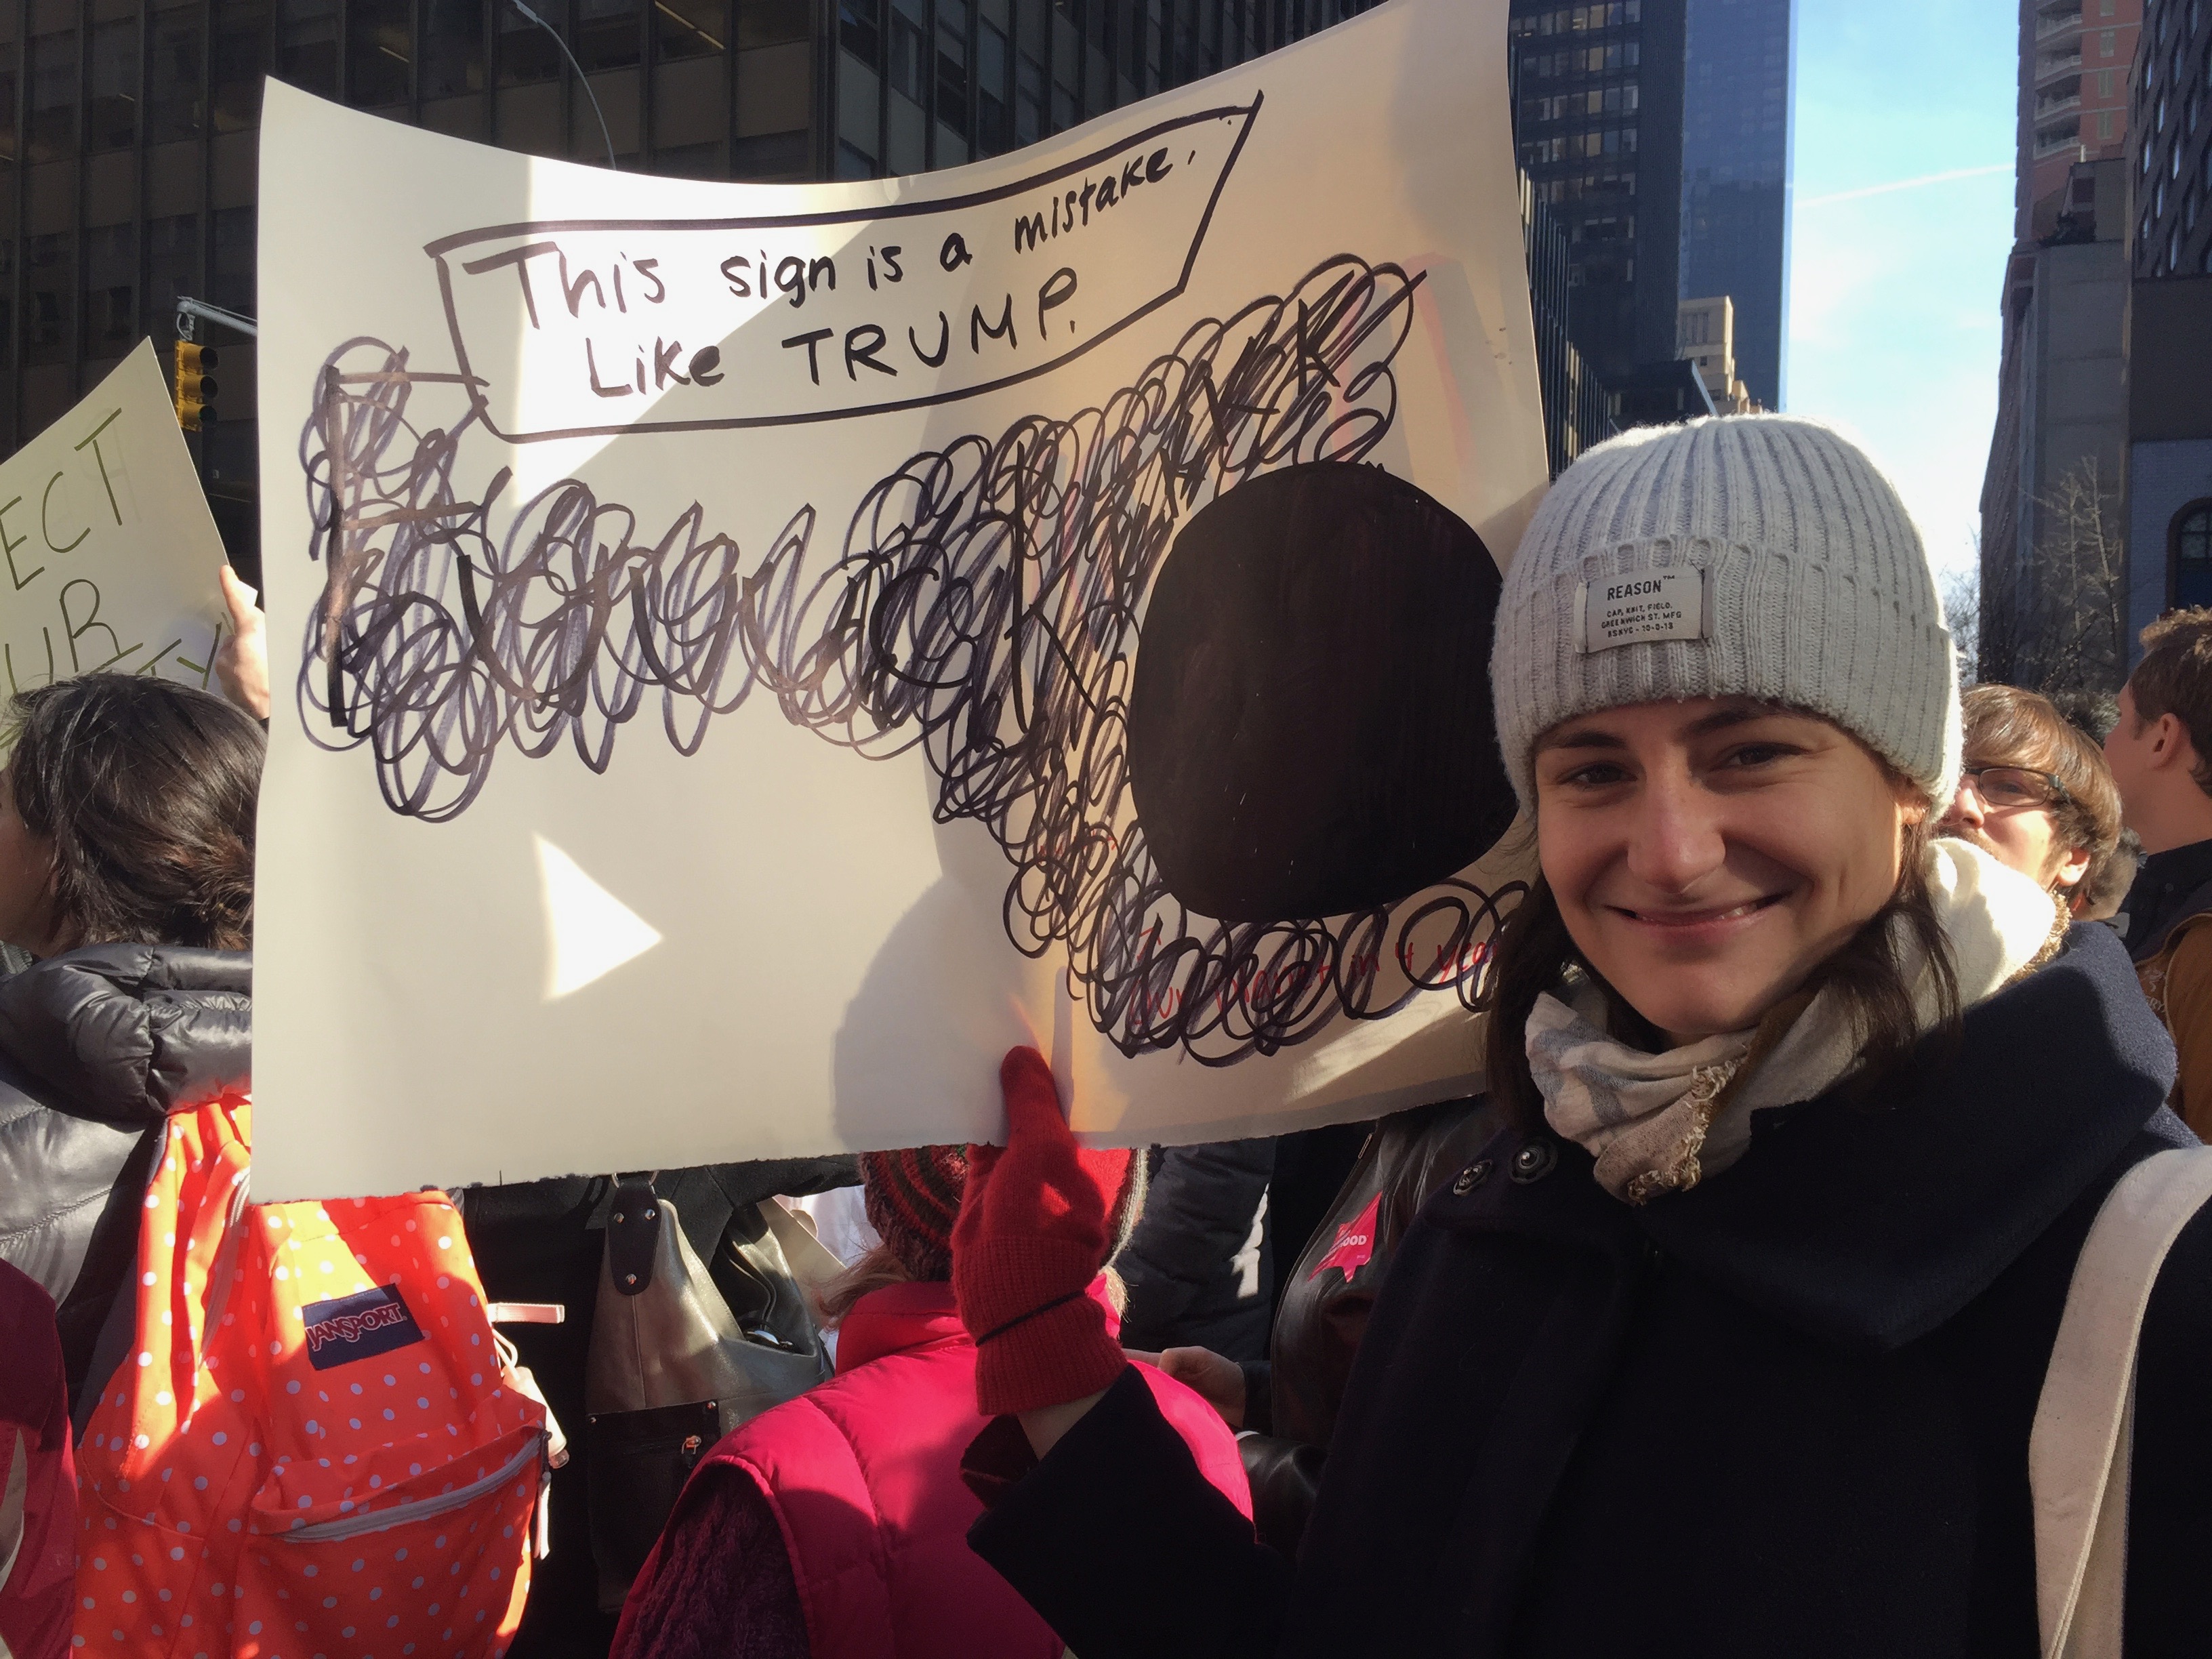 This sign is a mistake.
Like TRUMP.
in 4
ECT
UR
TY
REASON™
CAP, KNIT, FIELD.
GREENWICH ST. MFG
BSNYC - 10-0-13
JANSPORT